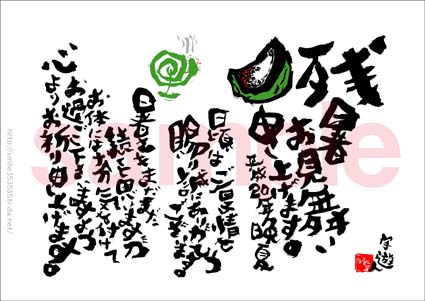 残暑
お見舞い
申し上げます。
平成20年晩夏
日頃はご厚情を
賜り誠にありがとう
ございます。
日暑さもまだまだ
続くと思いますが
お体には十分に気を付けて
お過ごしになりますよう
心よりお祈り申し上げます。
sample
http://smile353535.ti-da.net/